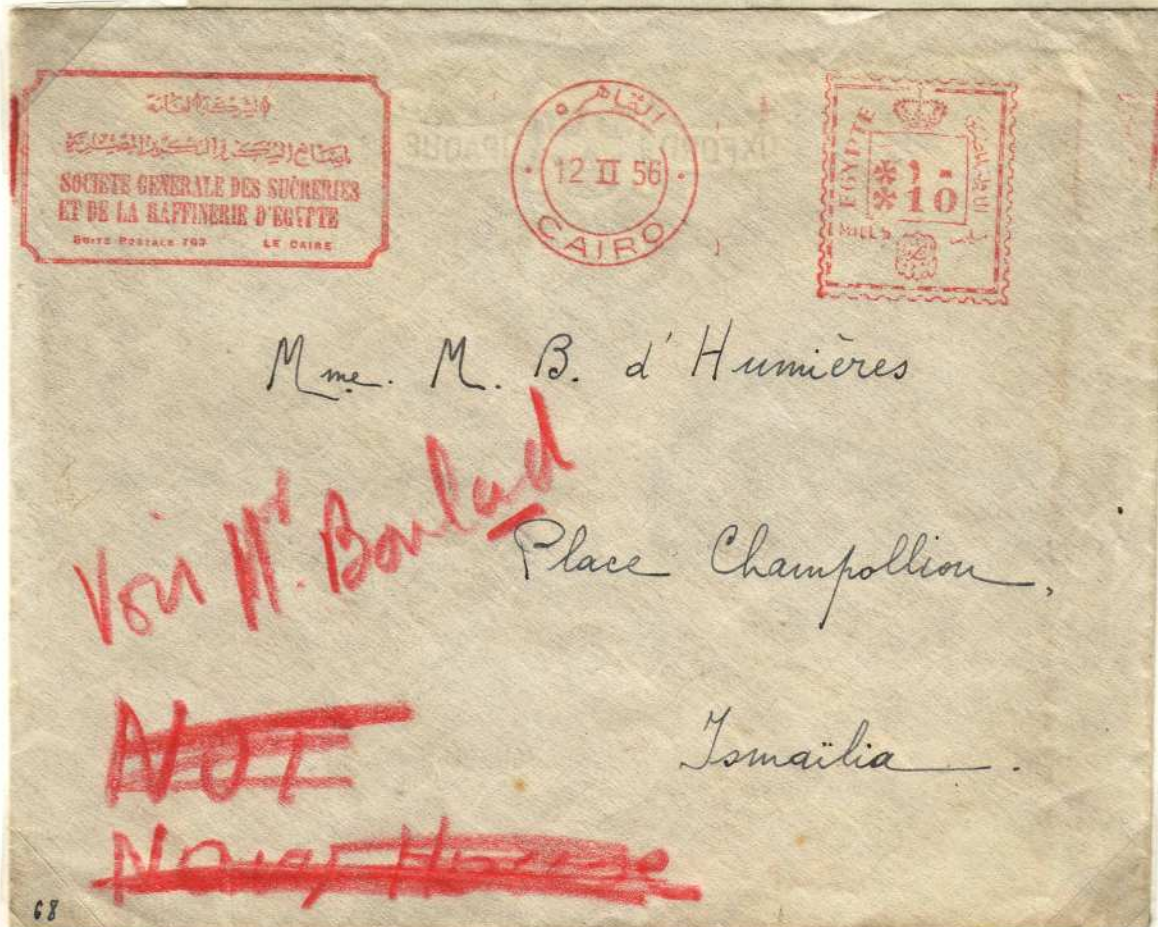 الشركة العامة
لمصانع السكر والتكرير المصرية
SOCIETE GENERALE DES SUCRERIES
ET DE LA RAFFINERIE D'EGYPTE
BOITE POSTALE 763 LE CAIRE
القاهرة
12 II 56
CAIRO
EGYPTE
**10
MILLS
Mme. M. B. d'Humières
Voir Mr. Boulad
Place Champollion,
Ismaïlia.
NOT
68